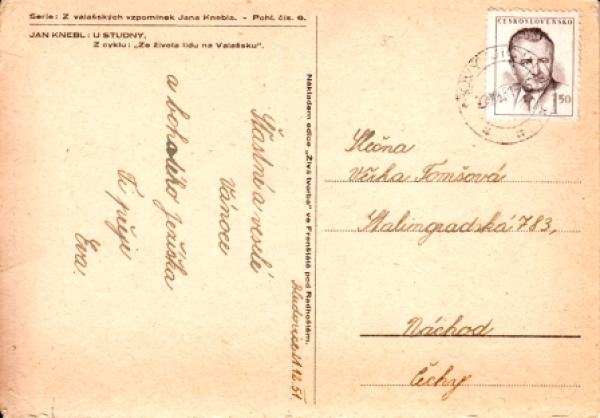 Serie: Z valašských vzpomínek Jana Knebla. - Pohl. čís. 6.
JAN KNEBL: U STUDNY.
Z cyklu: „Ze života lidu na Valašsku".
Šťastné a veselé
Vánoce
a bohatého Ježíška
Ti přeje
Eva.
21.12.51
Nákladem edice „Živá tvorba" ve Frenštátě pod Radhoštěm.
ČESKOSLOVENSKO
1.50
Slečna
Věrka Tomšová
Stalingradská 783,
Náchod
Čechy